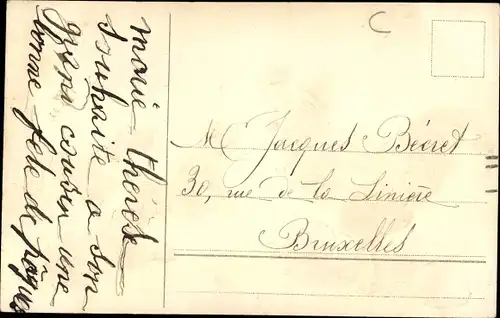 Marie Thérèse
souhaite a son
grand cousin une
bonne fête de pâques
C
M Jacques Béeret
30, rue de la Linière
Bruxelles